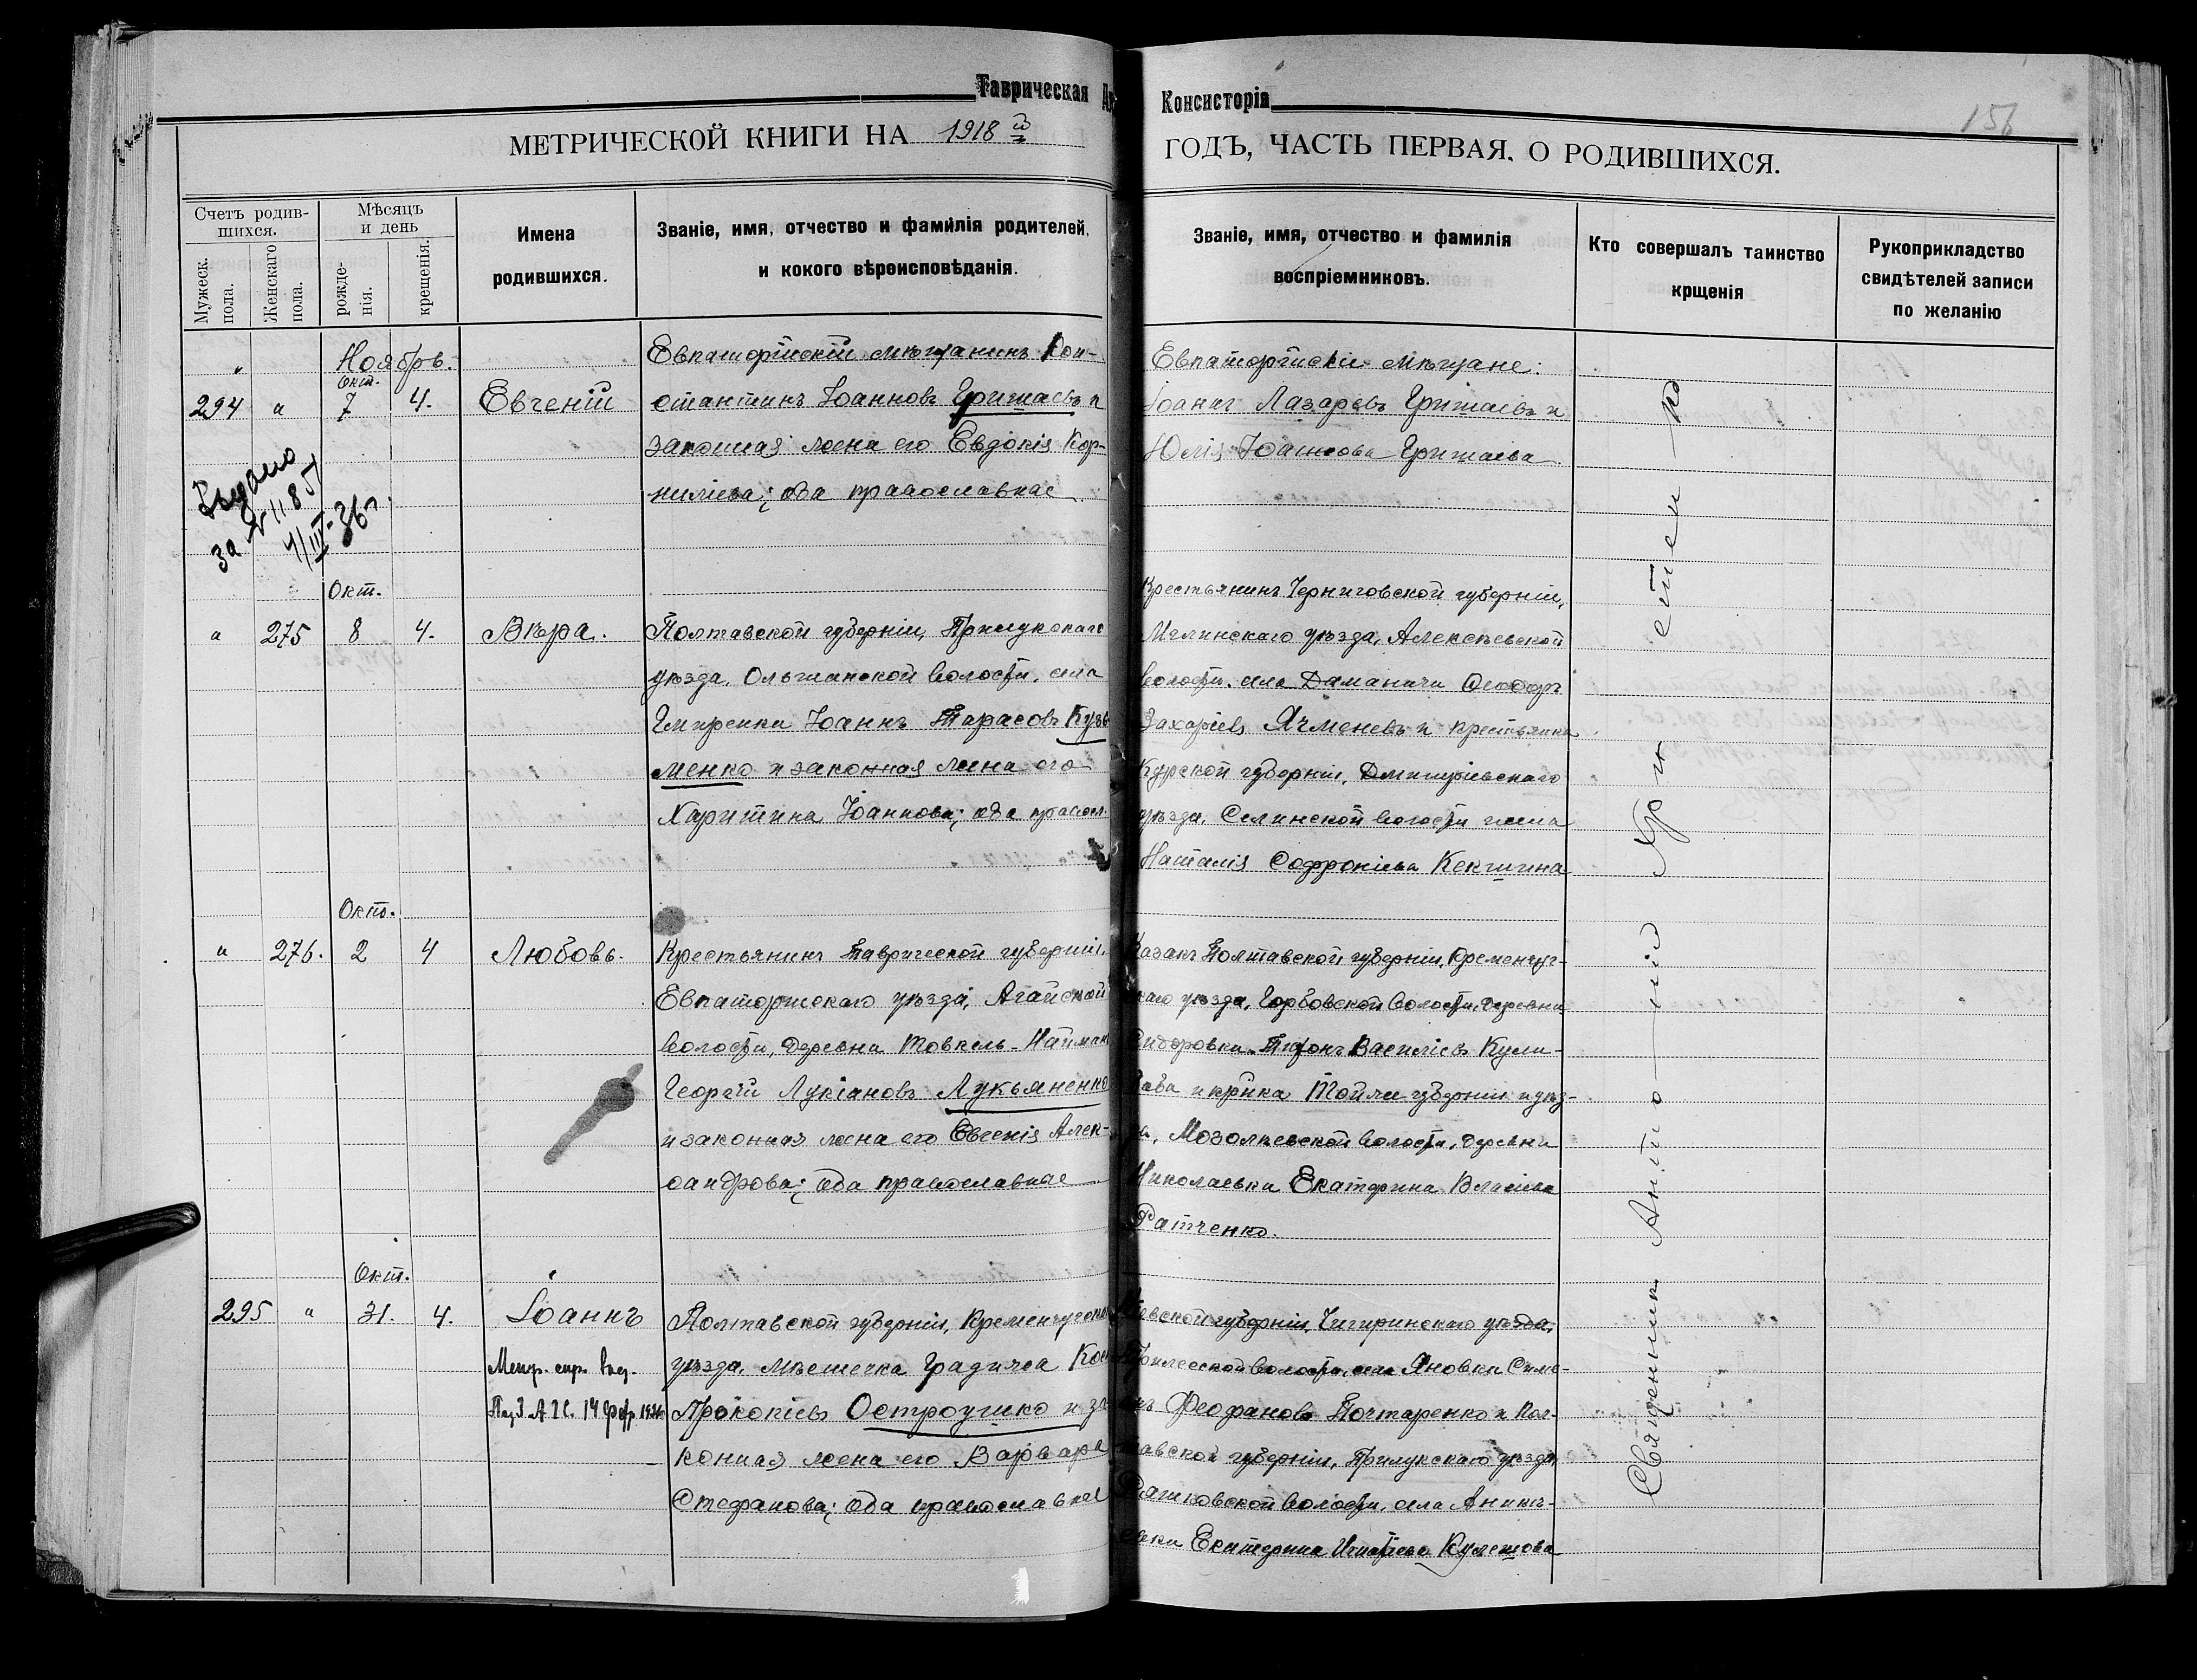 Таврическая
Консисторія
156
МЕТРИЧЕСКОЙ КНИГИ НА 1918 й
ГОДЪ, ЧАСТЬ ПЕРВАЯ, О РОДИВШИХСЯ.
Счетъ родив-
шихся.
Мужеск.
пола.
Женскаго
пола.
Мѣсяцъ
и день
рожде-
нія.
крещенія.
Имена
родившихся.
Званіе, имя, отчество и фамилія родителей,
и кокого вѣроисповѣданія.
Званіе, имя, отчество и фамилія
воспріемниковъ.
Кто совершалъ таинство
крщенія
Рукоприкладство
свидѣтелей записи
по желанію
Ноябрь.
294 " Окт. 7 4. Евгеній
Евпаторійскій мѣщанинъ Кон-
стантинъ Іоанновъ Гришаевъ и
законная жена его Евдокія Кор-
niліева; оба православные
Евпаторійскіе мѣщане:
Іоаннъ Лазаревъ Гришаевъ и
Юлія Іоаннова Гришаева
Выдано
за №
1/III-36г.
" 275 Окт. 8 4. Вѣра.
Полтавской губерніи, Прилукскаго
уѣзда, Ольшанской волости, села
Іоаннъ Тарасовъ Кузь-
менко и законная жена его
Харитина Іоаннова; оба правосл.
Крестьянинъ Черниговской губерніи,
Мглинскаго уѣзда, Алексѣевской
волости, села Даманичи Ѳеодоръ
Захаріевъ Ячменевъ и крестьянка
Курской губерніи, Дмитріевскаго
уѣзда, Селинской волости
Наталія Софроніева Кекшина
" 276. Окт. 2 4 Любовь.
Крестьянинъ Таврической губерніи,
Евпаторійскаго уѣзда, Агайской
волости, деревни Товкель-Найман
Георгій Лукіановъ Лукьяненко
и законная жена его Евгенія Алек-
сандрова; оба православные
Казакъ Полтавской губерніи, Кременчуг-
скаго уѣзда, Горбовской волости, деревни
Василіевъ Кули-
баба и кр-нка той же губерніи и уѣз-
да, Мозолѣевской волости, деревни
Николаевки Екатерина Власіева
Ратченко.
295 " Окт. 31. 4. Іоаннъ
Полтавской губерніи, Кременчугскаго
уѣзда, мѣстечка Градижска
Прокопіевъ Остроушко и за-
конная жена его Варвара
Стефанова; оба православные
Кіевской губерніи, Чигиринскаго уѣзда,
волости, села Яновки Симе-
онъ Ѳеофановъ Почтаренко и Пол-
тавской губерніи, Прилукскаго уѣзда
волости, села
Екатерина Игнатіева Кулешова
Священникъ Антоній Христенко